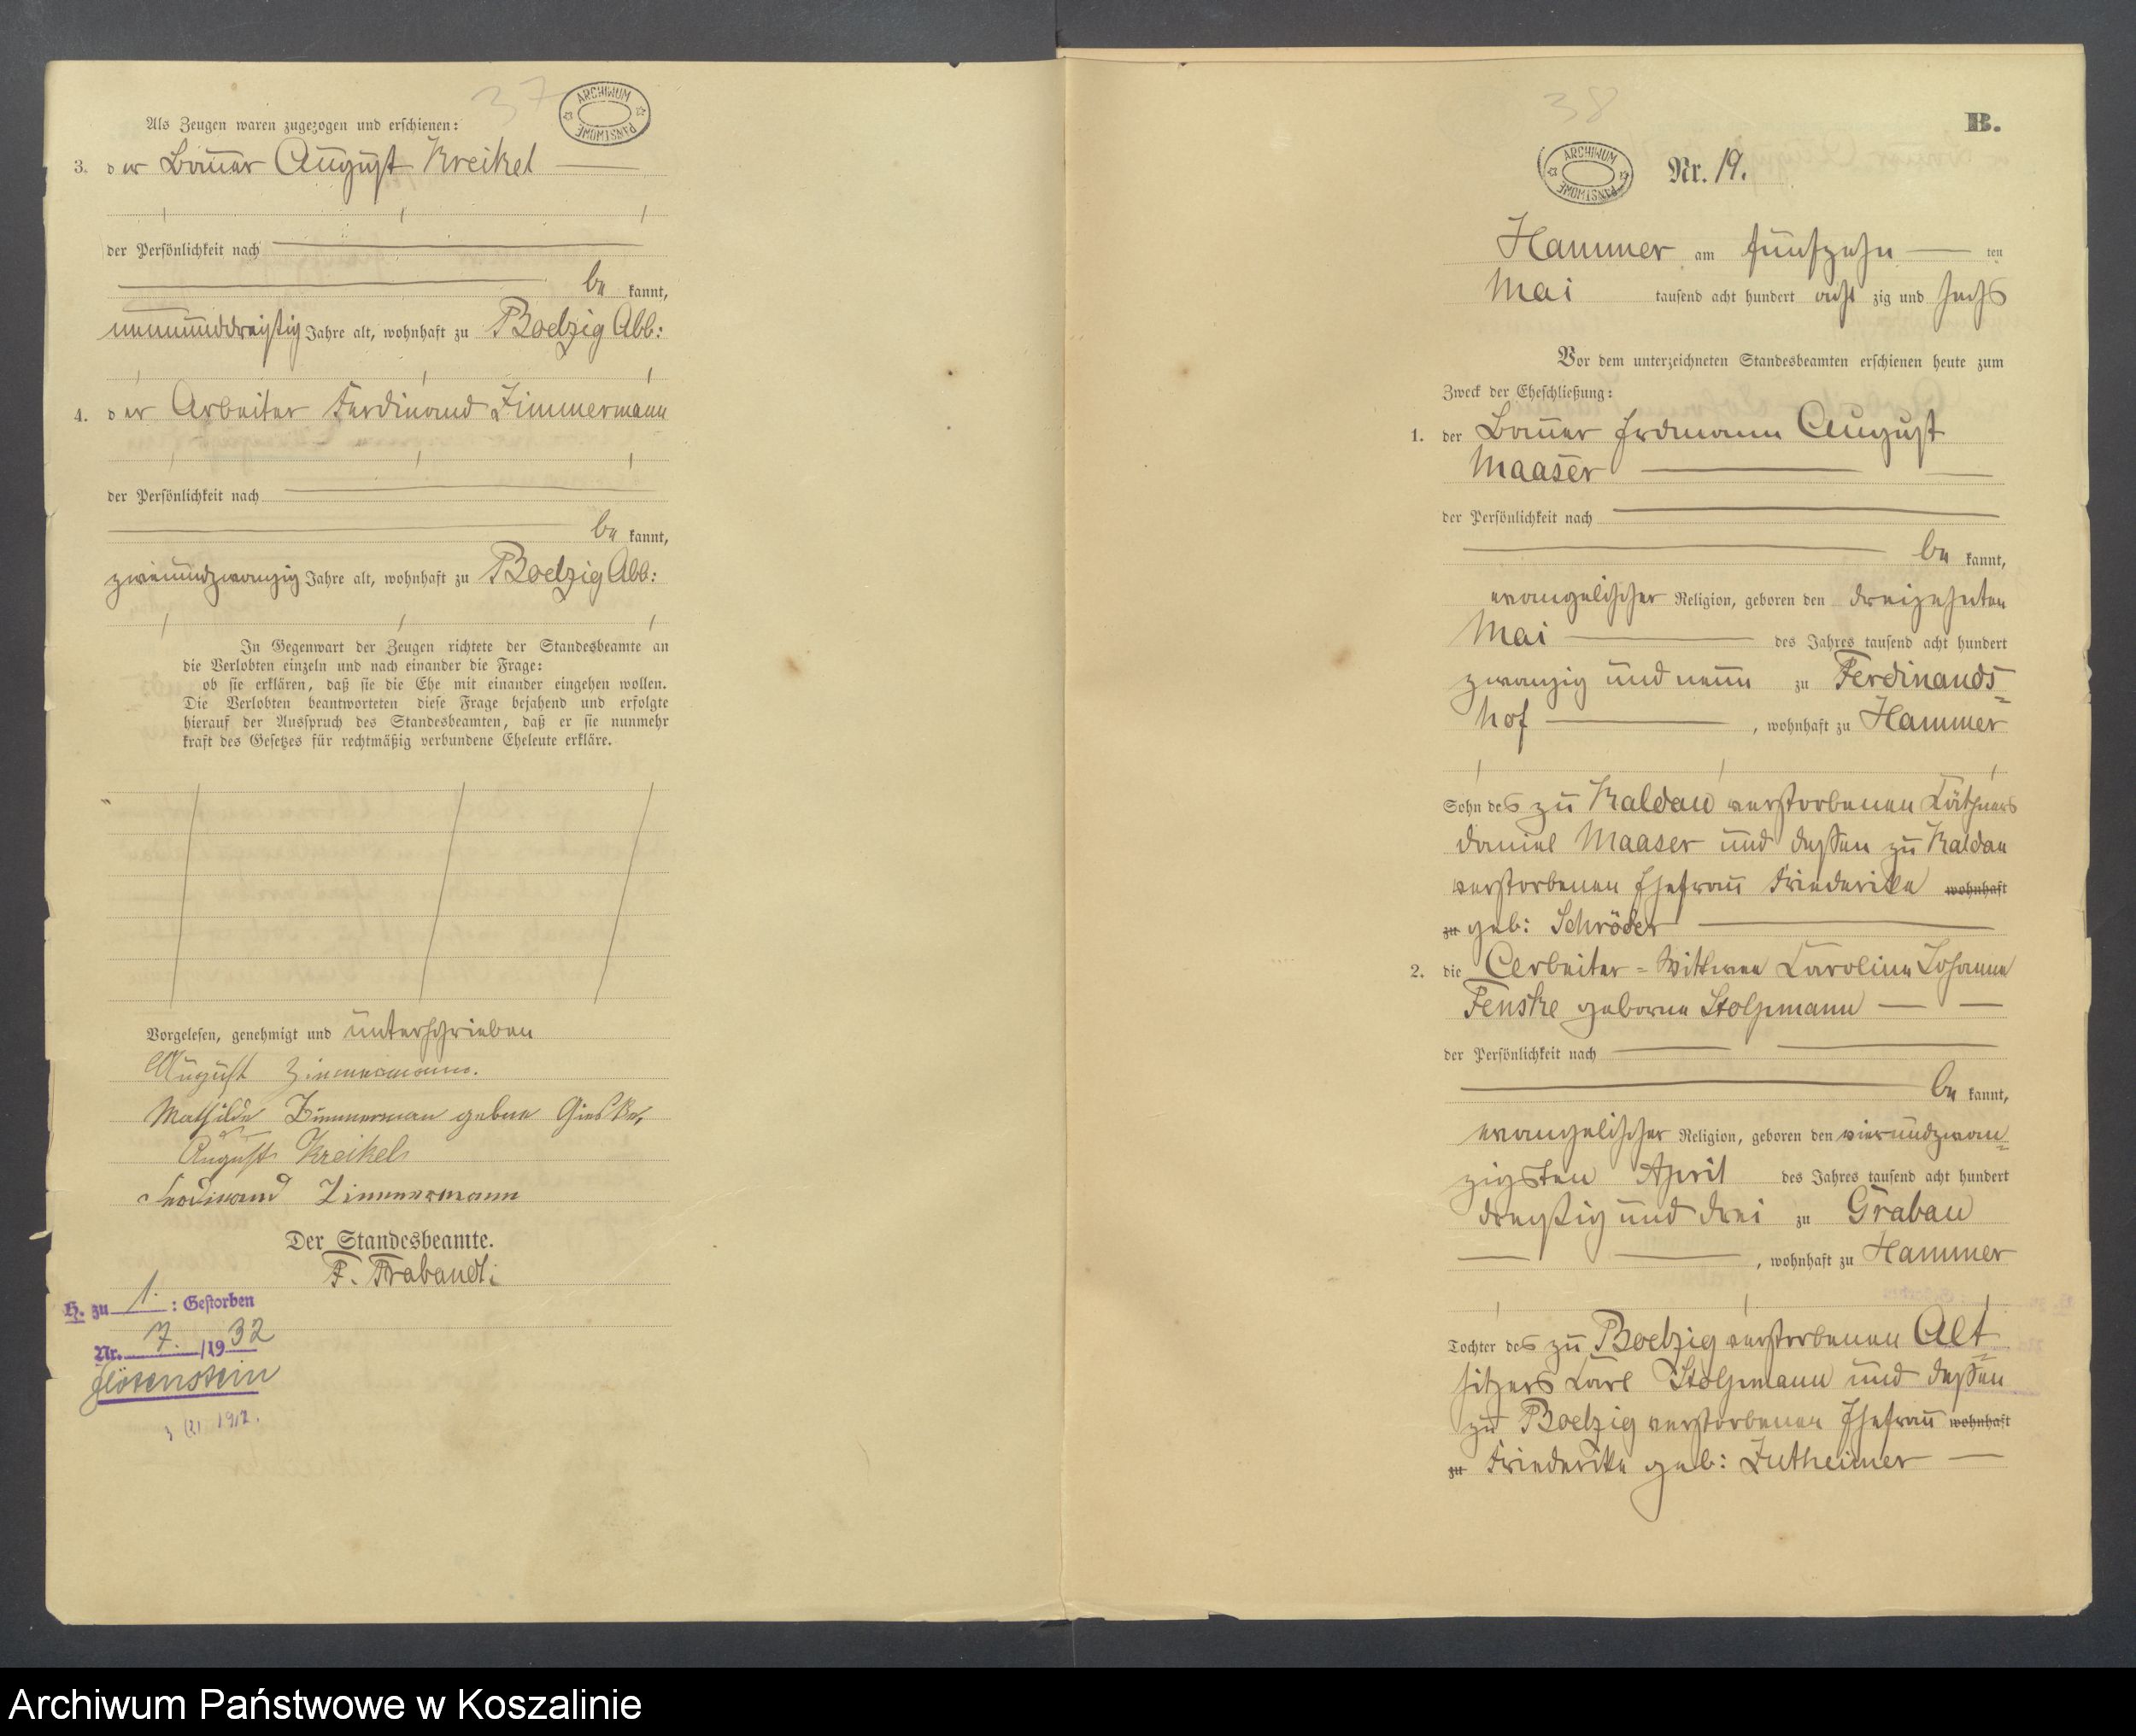 37
ARCHIWUM PAŃSTWOWE
Als Zeugen waren zugezogen und erschienen:
3. der Bauer August Kreikel
der Persönlichkeit nach
be kannt,
neununddreißig Jahre alt, wohnhaft zu Boelzig Abb:
4. der Arbeiter Ferdinand Zimmermann
der Persönlichkeit nach
be kannt,
zweiundzwanzig Jahre alt, wohnhaft zu Boelzig Abb:
In Gegenwart der Zeugen richtete der Standesbeamte an
die Verlobten einzeln und nach einander die Frage:
ob sie erklären, daß sie die Ehe mit einander eingehen wollen.
Die Verlobten beantworteten diese Frage bejahend und erfolgte
hierauf der Ausspruch des Standesbeamten, daß er sie nunmehr
kraft des Gesetzes für rechtmäßig verbundene Eheleute erkläre.
Vorgelesen, genehmigt und unterschrieben
August Zimmermann.
Mathilde Zimmerman geborne
August Kreikel
Ferdinand Zimmermann
Der Standesbeamte.
F. Brabandt.
H. zu 1. : Gestorben
Nr. 7. /1932
Flötenstein
1912.
38
B.
ARCHIWUM PAŃSTWOWE
Nr. 19.
Hammer am fünfzehn ten
Mai tausend acht hundert acht zig und sechs
Vor dem unterzeichneten Standesbeamten erschienen heute zum
Zweck der Eheschließung:
1. der Bauer Erdmann August
Maaser
der Persönlichkeit nach
be kannt,
evangelischer Religion, geboren den dreizehnten
Mai des Jahres tausend acht hundert
zwanzig und neun zu Ferdinands=
hof , wohnhaft zu Hammer
Sohn des zu Kaldau verstorbenen Käthners
Daniel Maaser und dessen zu Kaldau
verstorbenen Ehefrau Friederike wohnhaft
zu geb: Schröder
2. die Arbeiter=Wittwe Karoline Johanne
Fenske geborne Stolpmann
der Persönlichkeit nach
be kannt,
evangelischer Religion, geboren den vierundzwan=
zigsten April des Jahres tausend acht hundert
dreißig und drei zu Grabau
, wohnhaft zu Hammer
Tochter des zu Boelzig verstorbenen Alt=
sitzers Karl Stolpmann und dessen
zu Boelzig verstorbenen Ehefrau wohnhaft
zu Friederike geb: Lutheimer
Archiwum Państwowe w Koszalinie